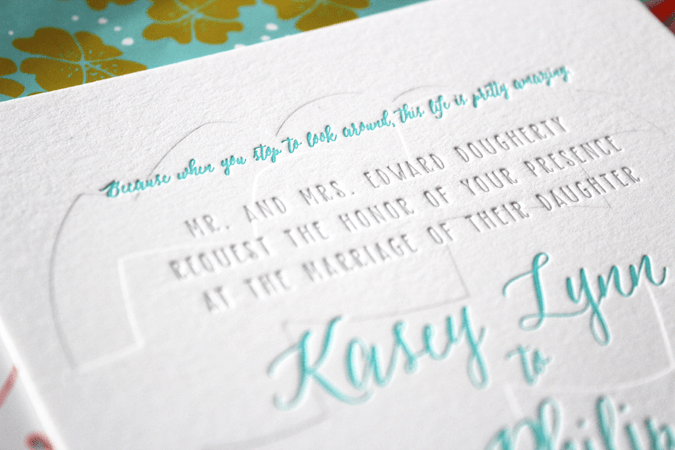 Because when you stop to look around, this life is pretty amazing.
MR. AND MRS. EDWARD DOUGHERTY
REQUEST THE HONOR OF YOUR PRESENCE
AT THE MARRIAGE OF THEIR DAUGHTER
Kasey Lynn
to
Philip